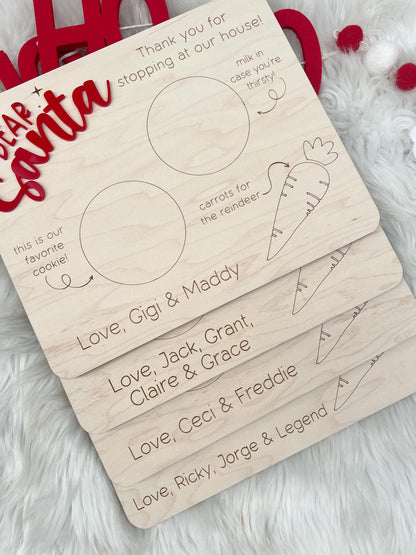 DEAR
Santa
Thank you for
stopping at our house!
milk in
case you're
thirsty!
this is our
favorite
cookie!
carrots for
the reindeer
Love, Gigi & Maddy
Love, Jack, Grant,
Claire & Grace
Love, Ceci & Freddie
Love, Ricky, Jorge & Legend